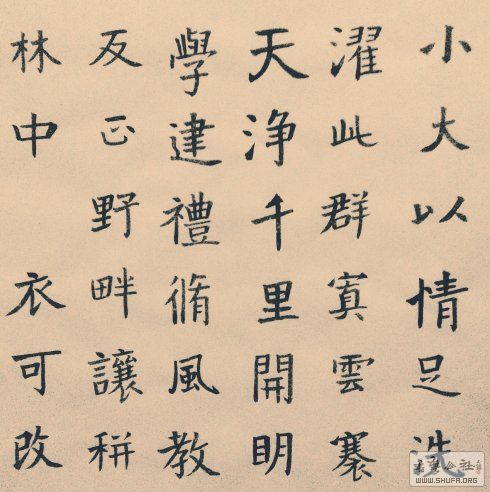 小大以情足洗
濯此群寘雲褰
天浄千里開明
學建禮脩風教
反正野畔讓耕
林中衣可改
WWW.SHUFA.ORG